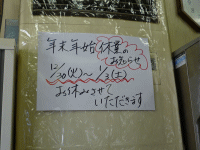 年末年始休業の
お知らせ
12/30(火)〜1/3(土)
お休みさせて
いただきます